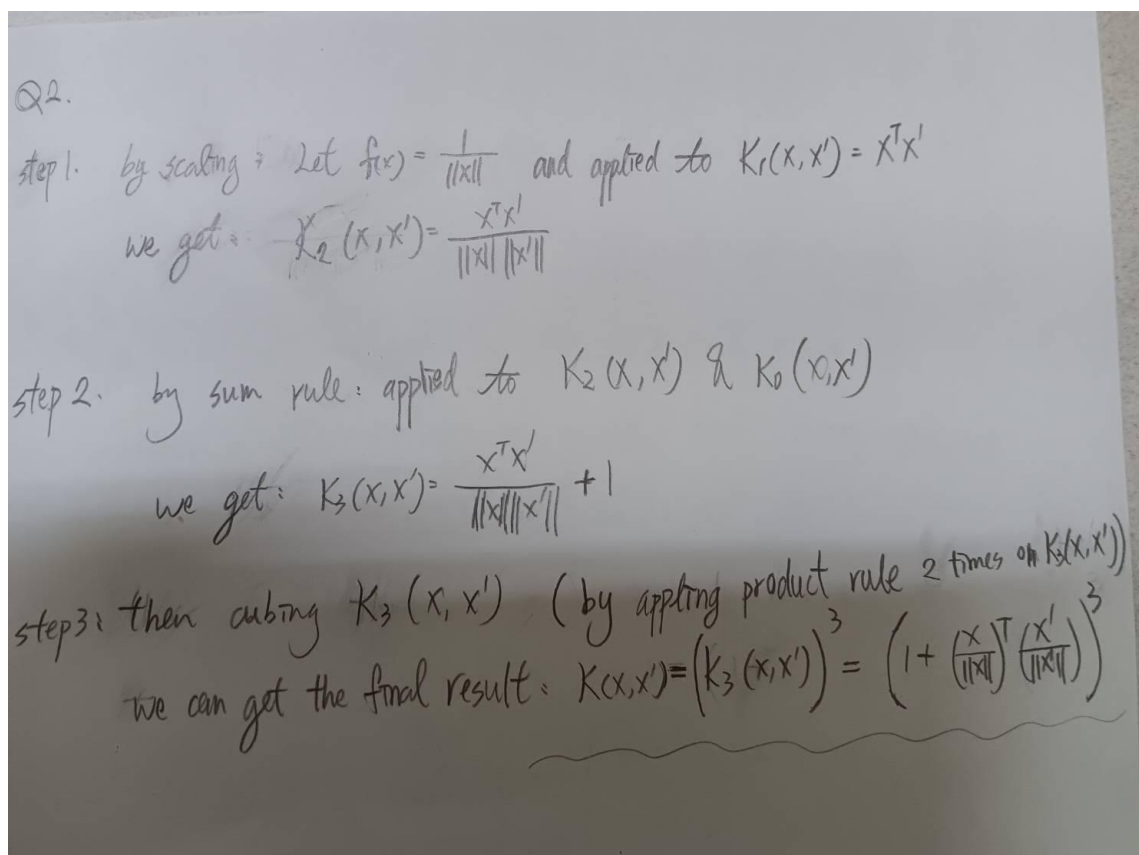 Q2.
step 1. by scaling : Let f(x) = 1/||x|| and applied to K₁(x, x') = xᵀx'
we get : K₂ (x, x') = xᵀx' / ||x|| ||x'||
step 2. by sum rule : applied to K₂ (x, x') & K₀ (x, x')
we get : K₃ (x, x') = xᵀx' / ||x|| ||x'|| + 1
step 3 : then cubing K₃ (x, x') ( by appling product rule 2 times on K₃(x, x'))
we can get the final result : K(x,x') = (K₃ (x,x'))³ = (1 + (x/||x||)ᵀ (x'/||x'||))³